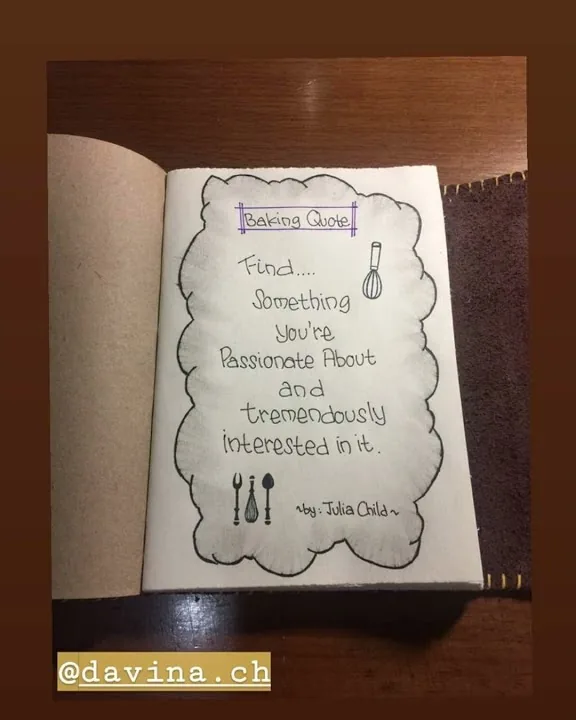 Baking Quote
Find....
Something
You're
Passionate About
and
tremendously
interested in it.
~by: Julia Child~
@davina.ch